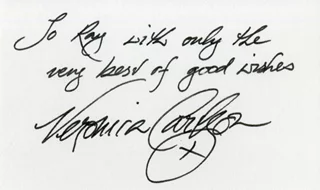 To Ray with only the
very best of good wishes
Veronica Carlson
x